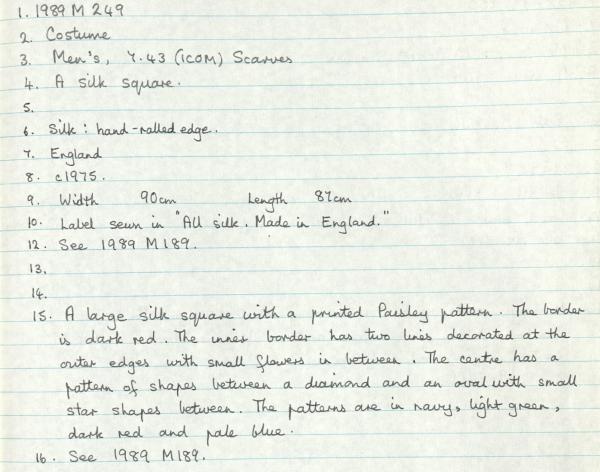 1. 1989 M 249
2. Costume
3. Men's, 7.43 (ICOM) Scarves
4. A silk square.
5.
6. Silk : hand-rolled edge.
7. England
8. c1975.
9. Width 90cm Length 87cm
10. Label sewn in "All silk. Made in England."
12. See 1989 M189.
13.
14.
15. A large silk square with a printed Paisley pattern. The border
is dark red. The inner border has two lines decorated at the
outer edges with small flowers in between. The centre has a
pattern of shapes between a diamond and an oval with small
star shapes between. The patterns are in navy, light green,
dark red and pale blue.
16. See 1989 M189.